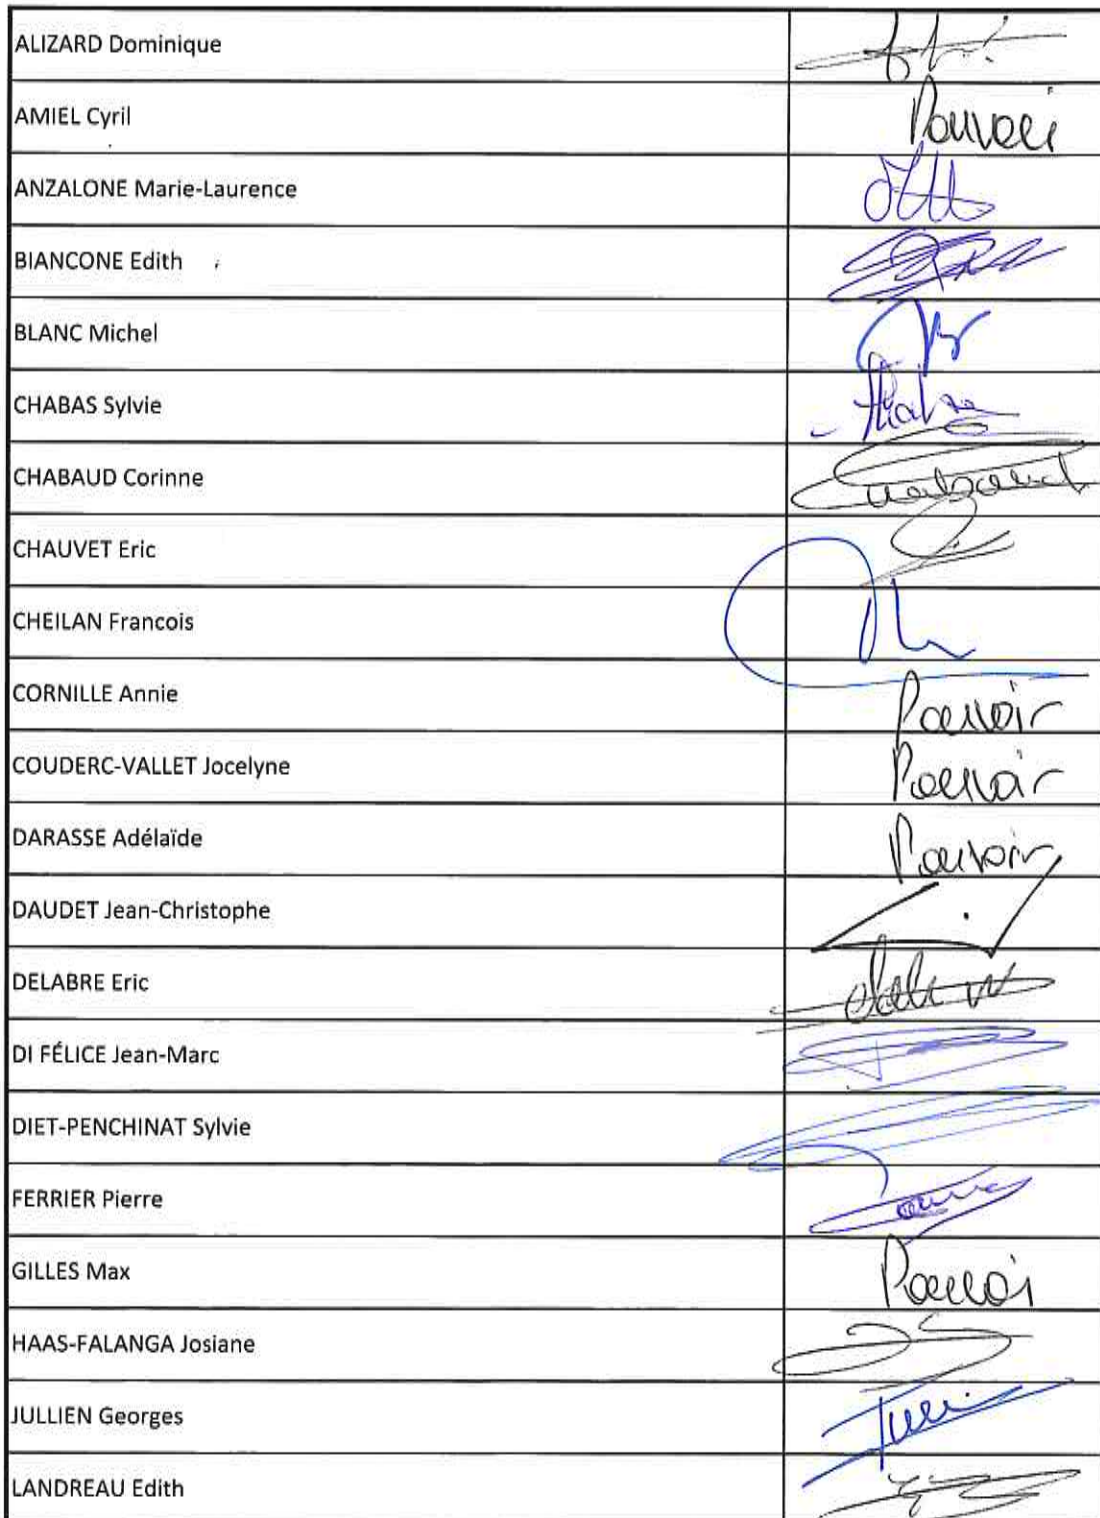 ALIZARD Dominique
AMIEL Cyril Pouvoir
ANZALONE Marie-Laurence
BIANCONE Edith
BLANC Michel
CHABAS Sylvie
CHABAUD Corinne Chabaud
CHAUVET Eric
CHEILAN Francois
CORNILLE Annie Pouvoir
COUDERC-VALLET Jocelyne Pouvoir
DARASSE Adélaïde Pouvoir
DAUDET Jean-Christophe
DELABRE Eric
DI FÉLICE Jean-Marc
DIET-PENCHINAT Sylvie
FERRIER Pierre
GILLES Max Pouvoir
HAAS-FALANGA Josiane
JULLIEN Georges
LANDREAU Edith